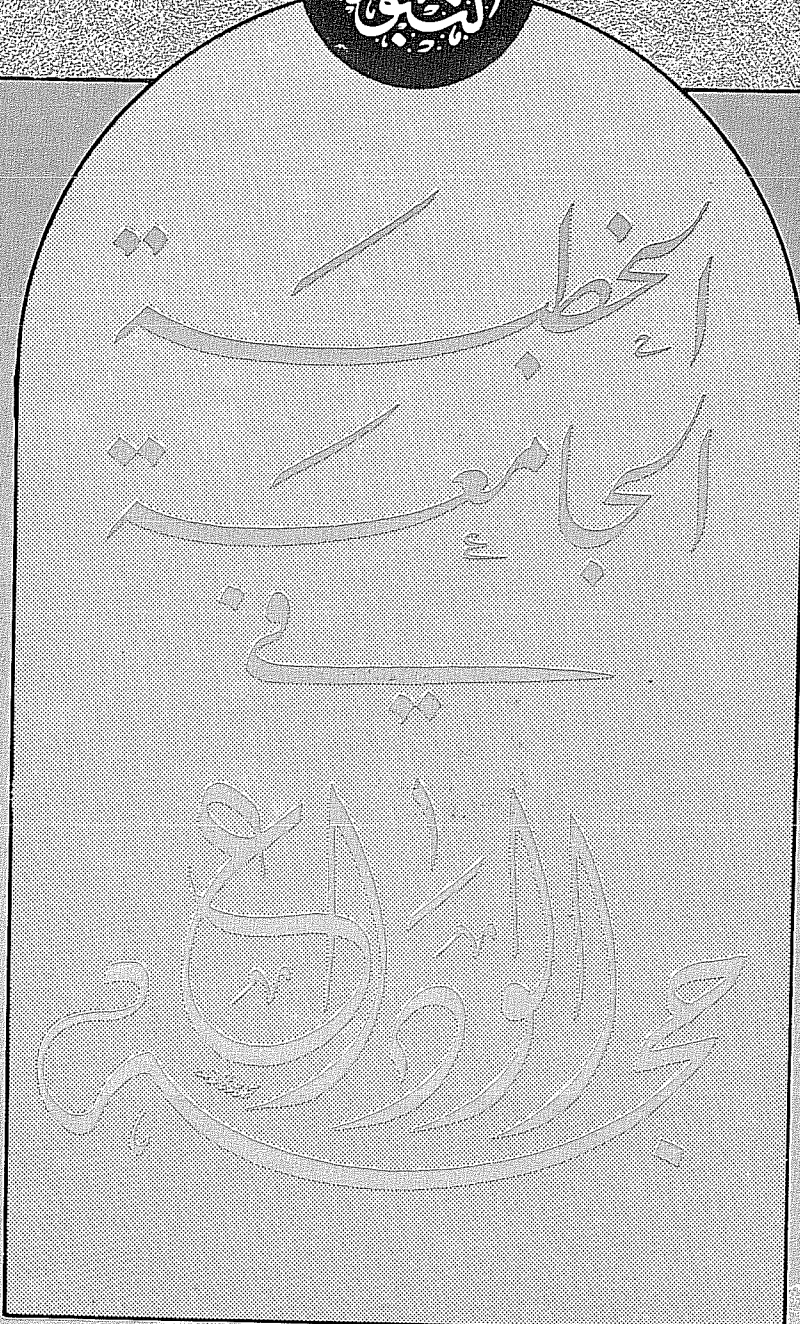 الخطبة
الجامعة
في
حجة الوداع